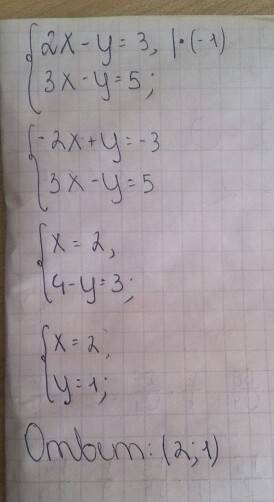 2x-y=3, |·(-1)
3x-y=5;
-2x+y=-3
3x-y=5
x=2,
4-y=3;
x=2,
y=1;
Ответ: (2;1)